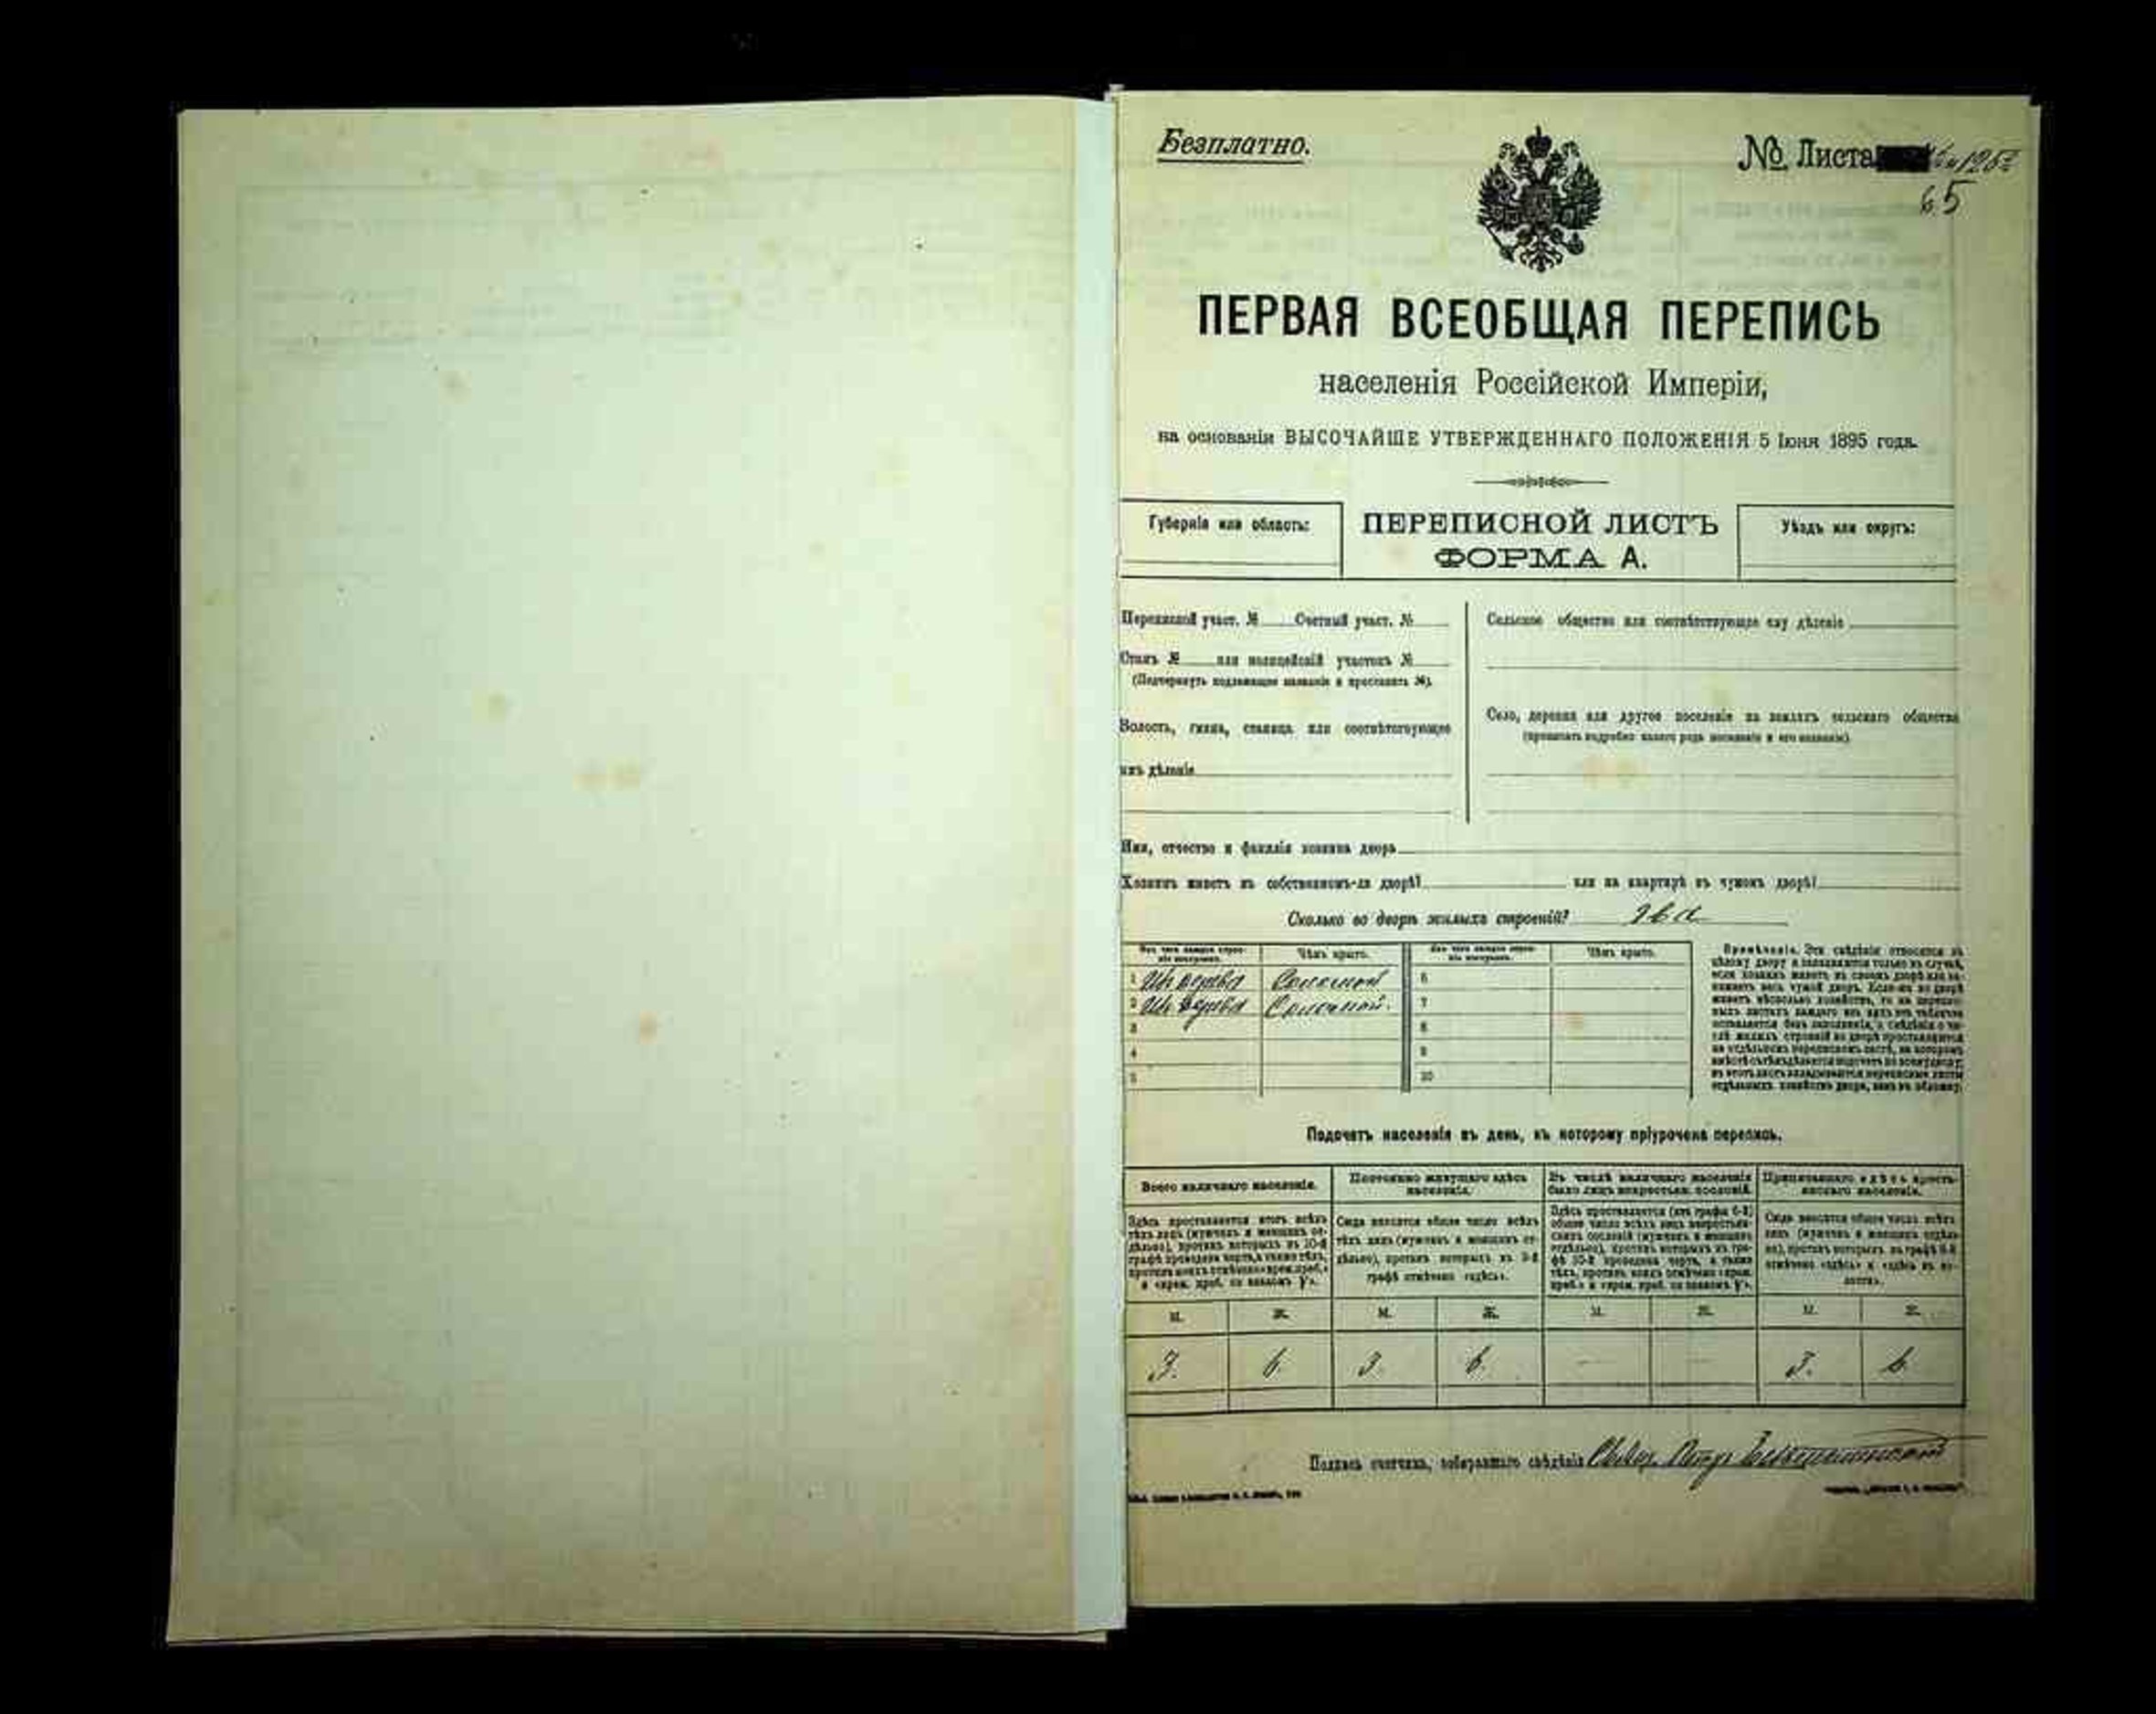 Безплатно.
№ Листа
65
ПЕРВАЯ ВСЕОБЩАЯ ПЕРЕПИСЬ
населенія Россійской Имперіи,
на основаніи ВЫСОЧАЙШЕ УТВЕРЖДЕННАГО ПОЛОЖЕНІЯ 5 Іюня 1895 года.
Губернія или область:
ПЕРЕПИСНОЙ ЛИСТЪ
ФОРМА А.
Уѣздъ или округъ:
Переписной участ. № Счетный участ. №
Станъ № или полицейскій участокъ №
(Подчеркнуть подлежащее названіе и проставить №).
Волость, гмина, станица или соотвѣтствующее
имъ дѣленіе
Сельское общество или соотвѣтствующее ему дѣленіе
Село, деревня или другое поселеніе на земляхъ сельскаго общества
(прописать подробно какого рода поселеніе и его названіе).
Имя, отчество и фамилія хозяина двора
Хозяинъ живетъ въ собственномъ-ли дворѣ? или на квартирѣ въ чужомъ дворѣ?
Сколько во дворѣ жилыхъ строеній? два
Изъ чего каждое строеніе построено. Чѣмъ крыто. Изъ чего каждое строеніе построено. Чѣмъ крыто.
1 Изъ дерева Соломой 6
2 Изъ дерева Соломой. 7
3 8
4 9
5 10
Примѣчаніе. Эти свѣдѣнія относятся къ
цѣлому двору и заполняются только въ случаѣ,
если хозяинъ живетъ въ своемъ дворѣ или за-
нимаетъ весь чужой дворъ. Если-же во дворѣ
живетъ нѣсколько хозяйствъ, то на перепис-
ныхъ листахъ каждаго изъ нихъ эта табличка
оставляется безъ заполненія, а свѣдѣнія о чи-
слѣ жилыхъ строеній во дворѣ проставляются
на отдѣльномъ переписномъ листѣ, на которомъ
Подсчетъ населенія въ день, къ которому пріурочена перепись.
Всего наличнаго населенія.
Здѣсь проставляется итогъ всѣхъ
тѣхъ лицъ (мужчинъ и женщинъ от-
дѣльно), противъ которыхъ въ 10-й
графѣ проведена черта, а также тѣхъ,
Постоянно живущаго здѣсь
населенія.
Сюда вносится общее число всѣхъ
тѣхъ лицъ (мужчинъ и женщинъ от-
дѣльно), противъ которыхъ въ 9-й
графѣ отмѣчено «здѣсь».
Въ числѣ наличнаго населенія
было лицъ некрестьян. сословій.
Приписаннаго здѣсь кресть-
янскаго населенія.
Сюда вносится общее число всѣхъ
лицъ (мужчинъ и женщинъ отдѣль-
но), противъ которыхъ въ графѣ 8-й
отмѣчено «здѣсь» и «здѣсь въ во-
лости».
М. Ж. М. Ж. М. Ж. М. Ж.
3. 6. 3. 6. — — 3. 6.
Подпись счетчика, собиравшаго свѣдѣнія